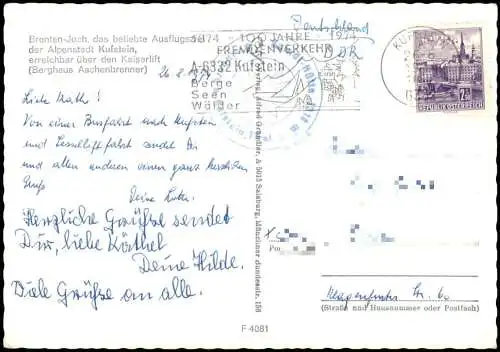 Brenten-Joch, das beliebte Ausflugsziel
der Alpenstadt Kufstein,
erreichbar über den Kaiserlift
(Berghaus Aachenbrenner)
1874 1974
100 JAHRE
FREMDENVERKEHR
A-6332 Kufstein
Berge
Seen
Wälder
Deutschland
DDR
REPUBLIK ÖSTERREICH
Liebe Käthe!
Von einer Busfahrt nach Kufstein
und Sessellift fahrt sendet Dir
und allen anderen einen ganz herzlichen
Gruß
Deine
Herzliche Grüße sendet
Dir, liebe Käthel
Deine Hilde.
Viele Grüße an alle.
Verlag Alfred Gründler, A 5013 Salzburg, Münchner Bundesstr. 156
Klagenfurter Str. 60
(Straße und Hausnummer oder Postfach)
F 4081